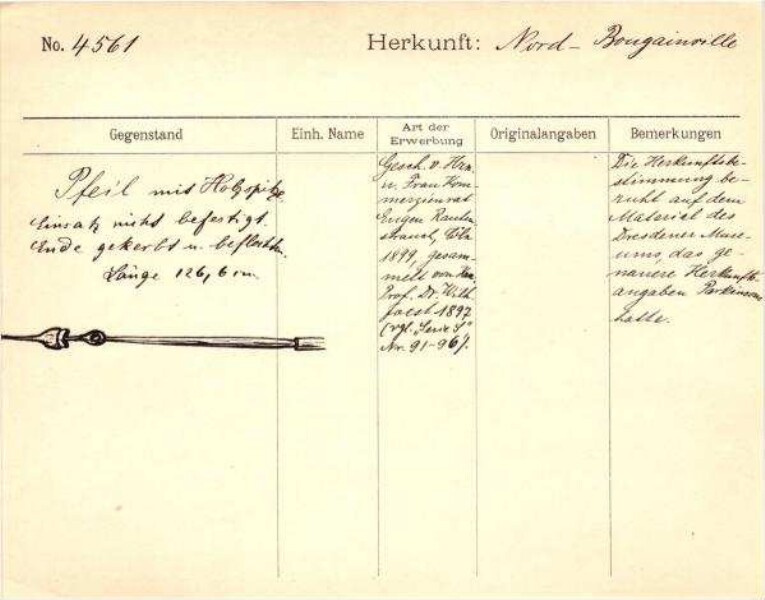 No. 4561
Herkunft: Nord-Bougainville
Gegenstand
Einh. Name
Art der Erwerbung
Originalangaben
Bemerkungen
Pfeil mit Holzspitze.
Einsatz nicht befestigt.
Ende gekerbt u. beflochten.
Länge 126,6 cm.
Gesch. v. Hrn.
u. Frau Kom-
merzienrat
Eugen Rauten-
strauch, Cöln
1899, gesam-
melt von
Prof. Dr. Wilh.
Joest 1897
(vgl. Serie S"
Nr. 91-96).
Die Herkunftsbe-
stimmung be-
ruht auf dem
Material des
Dresdener Muse-
ums, das ge-
nauere Herkunfts-
angaben Parkinsons
hatte.